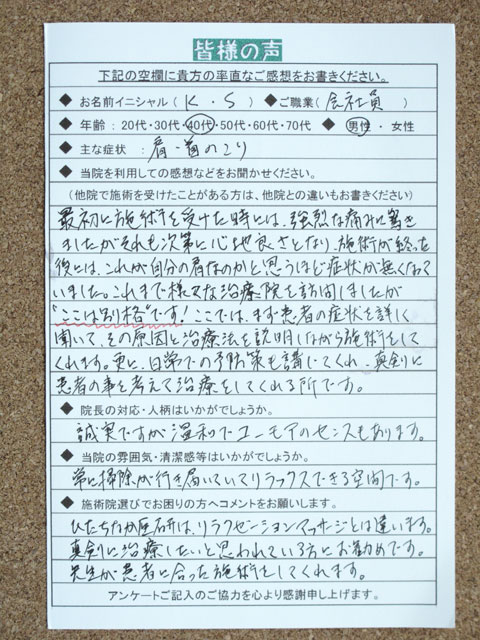 皆様の声
下記の空欄に貴方の率直なご感想をお書きください。
◆ お名前イニシャル ( K ・ S ) ◆ご職業 ( 会社員 )
◆ 年齢 : 20代・30代・40代・50代・60代・70代 ◆ 男性 ・ 女性
◆ 主な症状 : 肩・首のこり
◆ 当院を利用しての感想などをお聞かせください。
(他院で施術を受けたことがある方は、他院との違いもお書きください)
最初に施術を受けた時には、強烈な痛みに驚き
ましたがそれも次第に心地良さとなり、施術が終った
後には、これが自分の肩なのかと思うほど症状が無くなって
いました。これまで様々な治療院を訪問しましたが
"ここは別格"です!ここでは、まず患者の症状を詳しく
聞いて、その原因と治療法を説明しながら施術をして
くれます。更に、日常での予防策も講じてくれ、真剣に
患者の事を考えて治療をしてくれる所です。
◆ 院長の対応・人柄はいかがでしょうか。
誠実ですが温和でユーモアのセンスもあります。
◆ 当院の雰囲気・清潔感等はいかがでしょうか。
常に掃除が行き届いていてリラックスできる空間です。
◆ 施術院選びでお困りの方へコメントをお願いします。
ひたちなか整研は、リラクゼーションマッサージとは違います。
真剣に治療したいと思われている方にお勧めです。
先生が患者に合った施術をしてくれます。
アンケートご記入のご協力を心より感謝申し上げます。